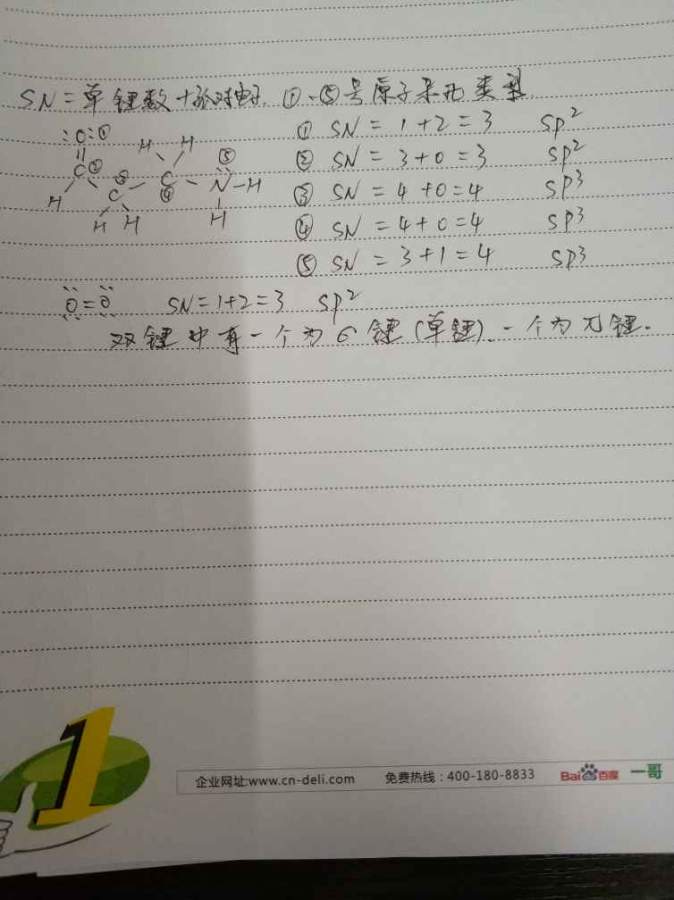 SN = 单键数 + 孤对电子. ①-⑤号原子杂化类型.
:O: ①
① SN = 1+2 = 3 sp²
② SN = 3+0 = 3 sp²
③ SN = 4+0=4 sp³
④ SN = 4+0=4 sp³
⑤ SN = 3+1=4 sp3
H H ⑤
C ② ③ C C ④ N-H
H H H H
O=O SN=1+2=3 sp²
双键中有一个为σ键(单键).一个为π键.
1
企业网址:www.cn-deli.com 免费热线:400-180-8833 Bai百度 一哥